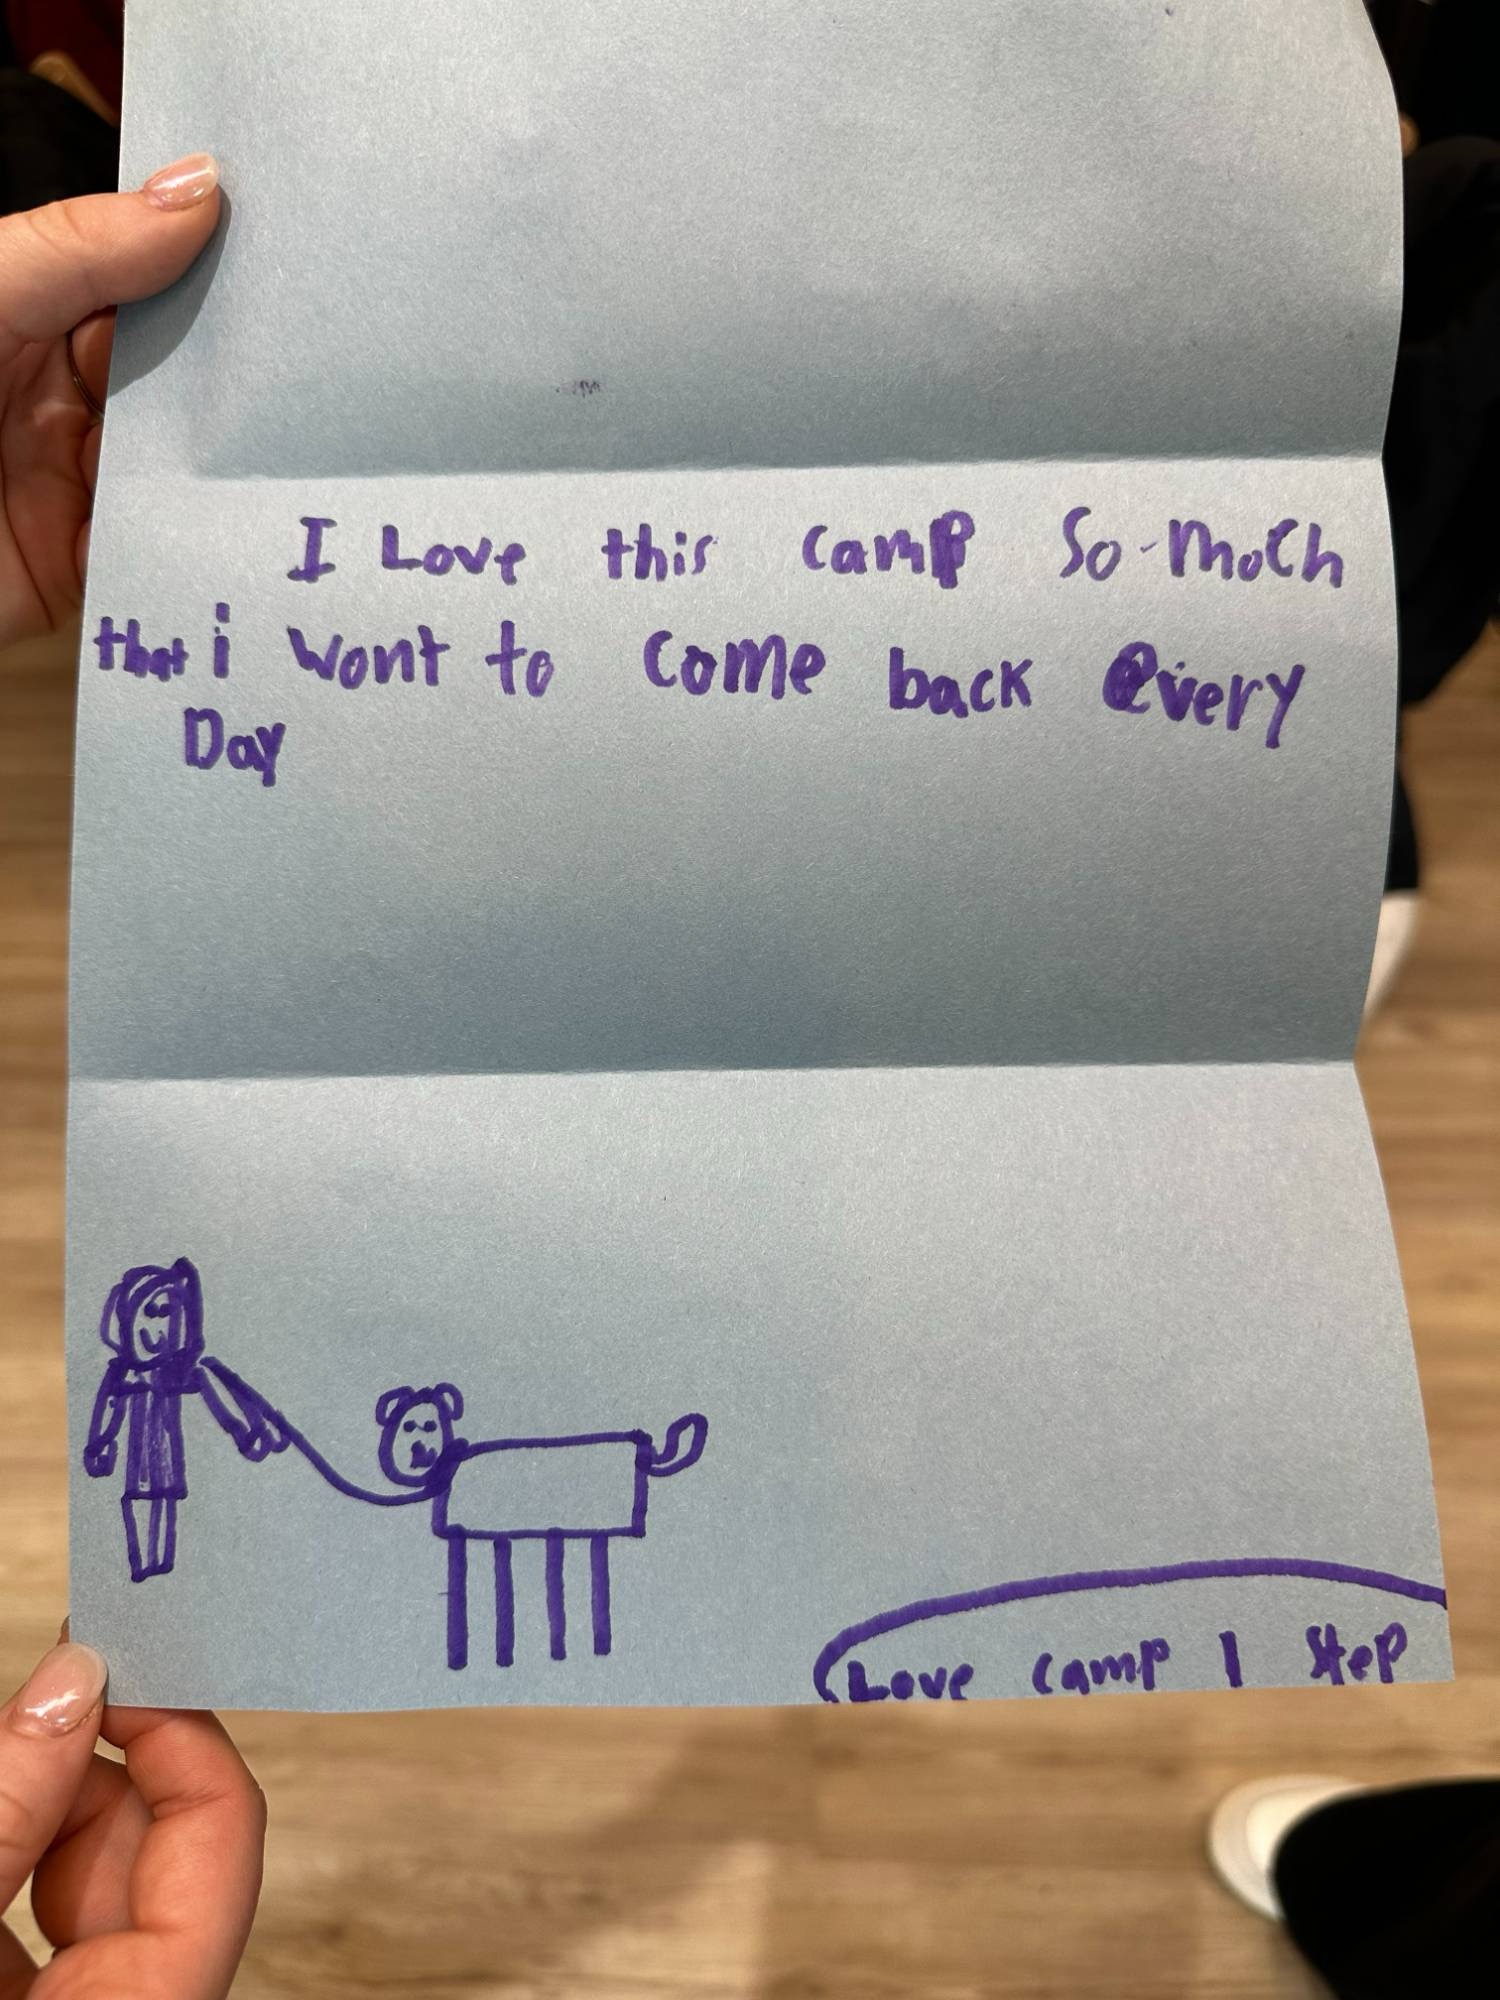 I Love this camp So-Moch
that i wont to come back every
Day
Love camp 1 step